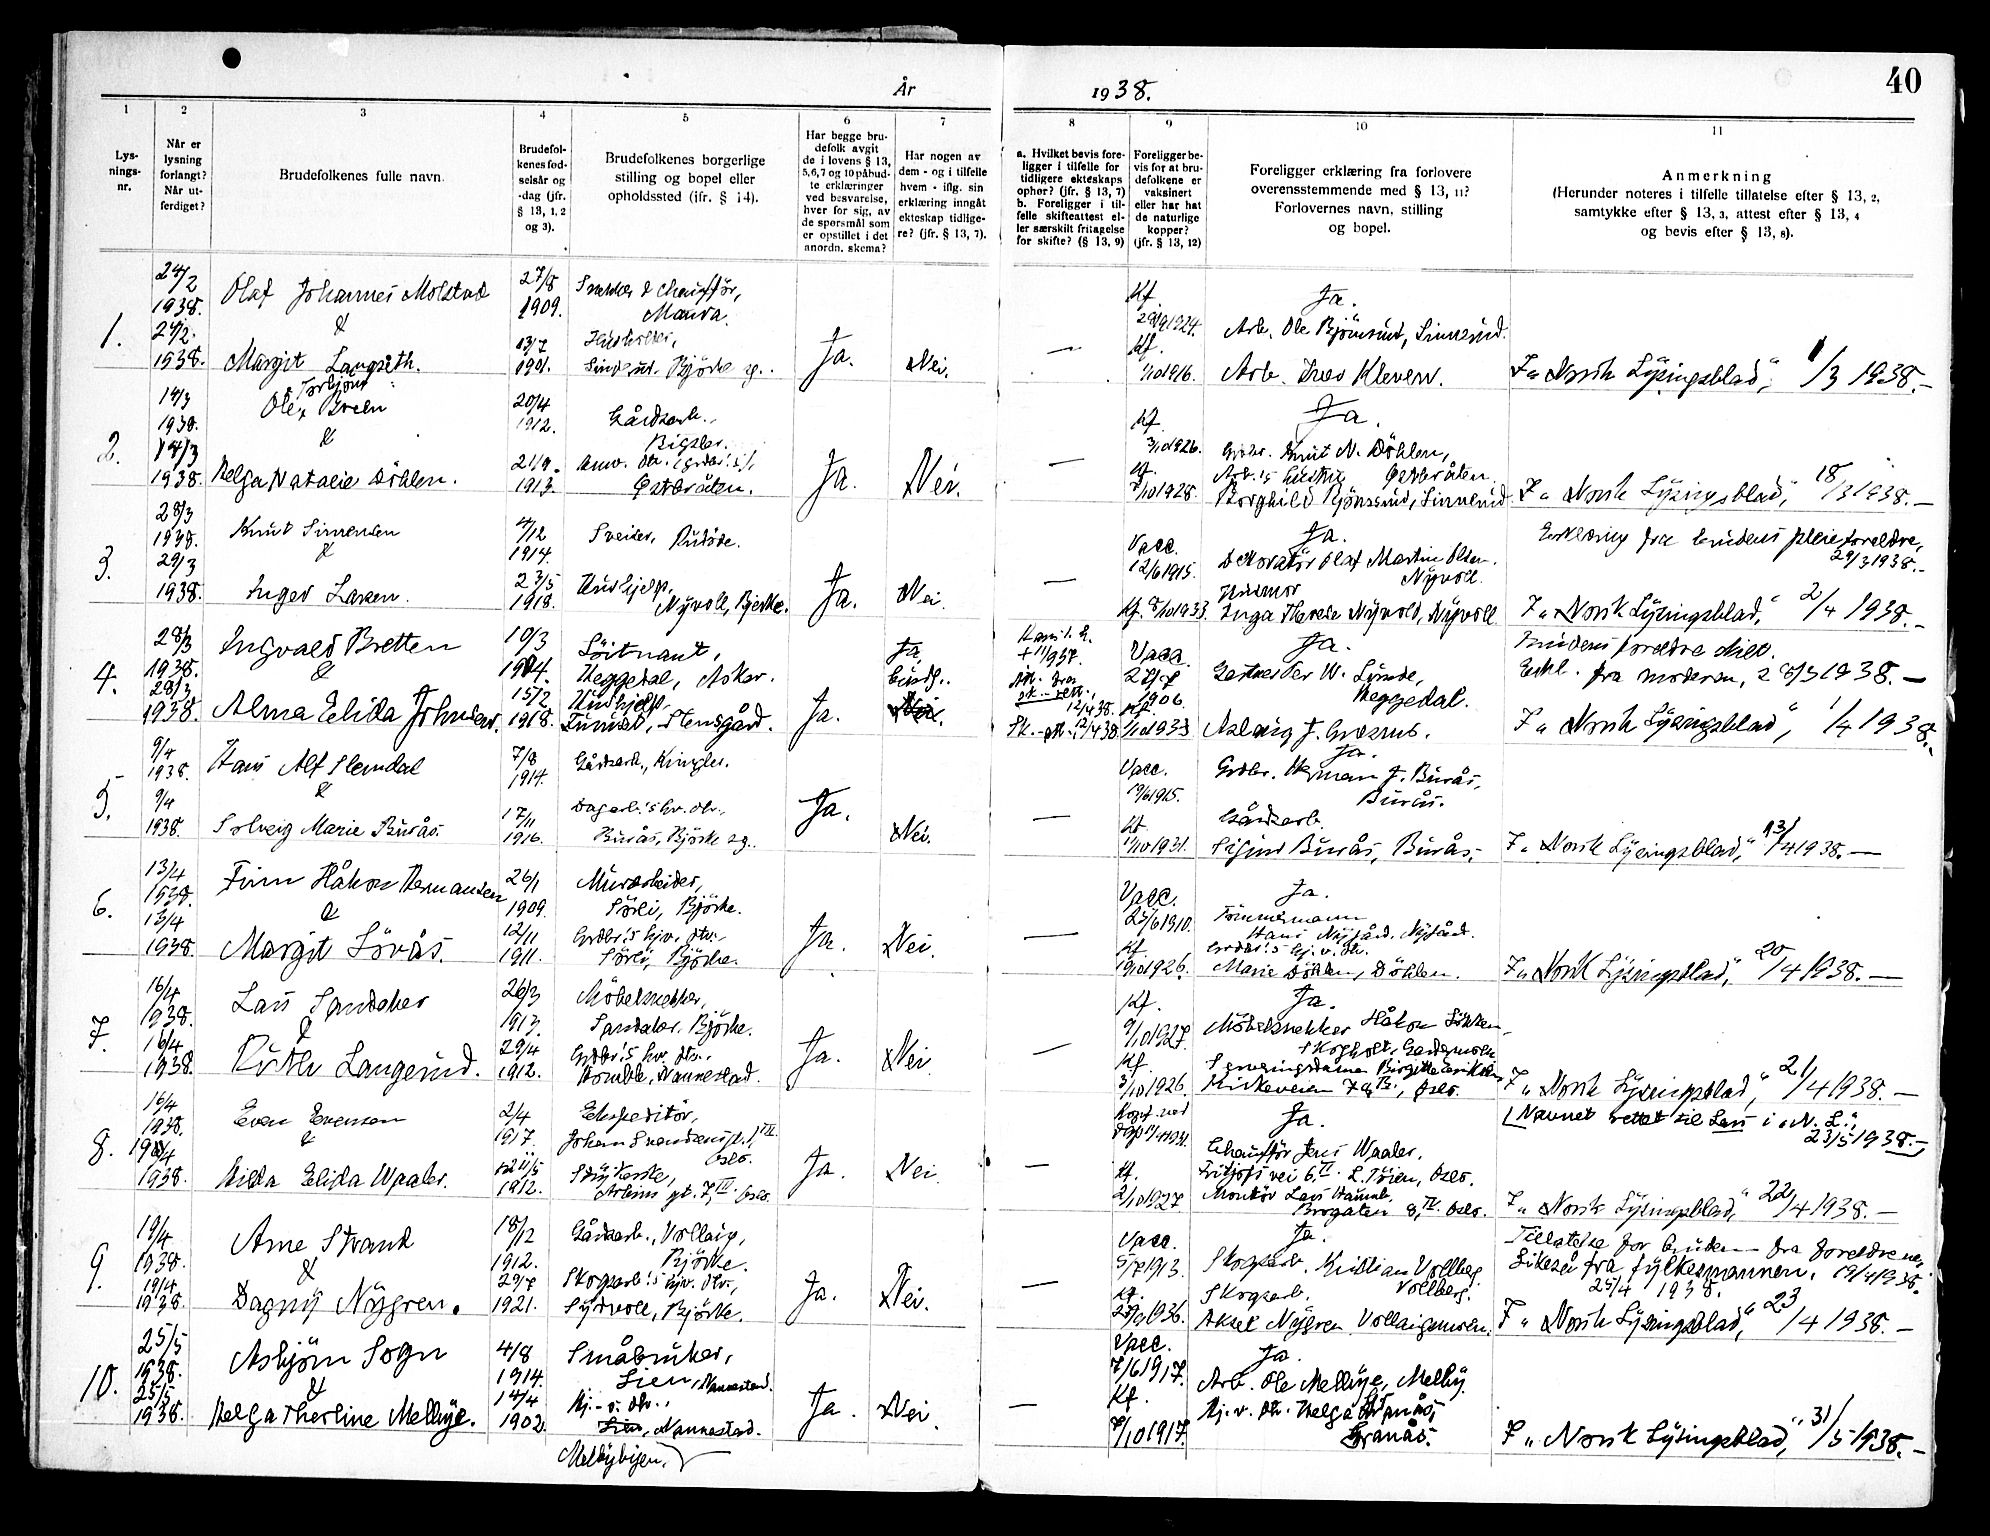 40
År 1938.
1 2 3 4 5 6 7 8 9 10 11
Lys-
nings-
nr.
Når er
lysning
forlangt?
Når ut-
ferdiget?
Brudefolkenes fulle navn.
Brudefol-
kenes fød-
selsår og
-dag (jfr.
§ 13, 1, 2
og 3).
Brudefolkenes borgerlige
stilling og bopel eller
opholdssted (jfr. § 14).
Har begge bru-
defolk avgit
de i lovens § 13,
5, 6, 7 og 10 påbud-
te erklæringer
ved besvarelse,
hver for sig, av
de spørsmål som
er opstillet i det
anordn. skema?
Har nogen av
dem - og i tilfelle
hvem - iflg. sin
erklæring inngåt
ekteskap tidlige-
re? (jfr. § 13, 7).
a. Hvilket bevis fore-
ligger i tilfelle for
tidligere ekteskaps
ophør? (jfr. § 13, 7)
b. Foreligger i til-
felle skifteattest el-
ler særskilt fritagelse
for skifte? (§ 13, 9)
Foreligger be-
vis for at bru-
defolkene er
vaksinert
eller har hat
de naturlige
kopper?
(jfr. § 13, 12)
Foreligger erklæring fra forlovere
overensstemmende med § 13, 11?
Forlovernes navn, stilling
og bopel.
Anmerkning
(Herunder noteres i tilfelle tillatelse efter § 13, 2,
samtykke efter § 13, 3, attest efter § 13, 4
og bevis efter § 13, 8).
1.
24/2
1938.
Olaf Johannes Molstad
27/8
1909.
Snekker & chauffør,
Maura.
&
24/2.
1938.
Margit Langseth.
13/7
1901.
Husholder,
Bjørke sg.
Ja. Nei. —
Kf.
1924.
Kf.
1/10 1916.
Ja.
Arb. Ole Bjørnsrud,
Arb. Kleven.
I „Norsk Lysingsblad," 1/3 1938. —
2.
14/3
1938.
Ole Torbjørn Breen
20/4
1912.
Gårdsarb.
&
14/3
1938.
Helga Natalie Döhlen.
21/9.
1913.
Østbråten.
Ja. Nei. —
Kf.
3/10 1926.
Kf.
1/10 1928.
Ja.
Grdbr. Knut N. Döhlen,
Østbråten.
Arb.'s hustru
Borghild
I „Norsk Lysingsblad," 18/3 1938. —
3.
28/3
1938.
Knut Simensen
4/12
1914.
Sveiser,
&
29/3
1938.
Inger Larsen.
23/5
1918.
Hushjelp,
Nyvoll, Bjerke.
Ja. Nei. —
Vacc.
12/6 1915.
Kf. 8/10 1933.
Ja.
Dekoratør Olaf Martin Olsen.
Nyvoll.
Husmor
Inga Therese Nyvold, Nyvoll
Erklæring fra brudens pleieforeldre,
29/3 1938. —
I „Norsk Lysingsblad," 2/4 1938. —
4.
28/3
1938.
Ingvald Bretten
10/3
1904.
Löitnant,
Heggedal, Asker.
&
28/3
1938.
Alma Elida Johnsen
15/2
1918.
Hushjelp,
Stensgård.
Ja.
Ja
Nei.
12/4 38.
Sk.-att. 12/4 38
Vacc.
27/7
1906.
Kf.
1/10 1933
Ja.
Gartner Per W. Lunde,
Heggedal.
Aslaug J. Græsrud.
Brudens foreldre skilt.
Erkl. fra moderen, 28/3 1938. —
I „Norsk Lysingsblad", 1/4 1938. —
5.
9/4
1938.
Hans Alf Stemdal
7/8
1914.
Gårdsarb., Kringler.
&
9/4
1938.
Solveig Marie Burås.
17/11
1916.
Dagarb.'s hv. dtr.
Burås, Bjørke sg.
Ja. Nei. —
Vacc.
19/6 1915.
Kf.
1/10 1931.
Ja.
Grdbr. Herman J. Burås,
Burås.
Gårdsarb.
Sigurd Burås, Burås.
I „Norsk Lysingsblad," 13/4 1938. —
6.
13/4
1938.
Finn Håkon Hermansen
26/1
1909.
Murarbeider,
Sörli, Bjørke.
&
13/4
1938.
Margit Lövås.
12/11
1911.
Grdbr.'s hjv. dtr.
Sörli, Bjørke.
Ja. Nei. —
Vacc.
23/6 1910.
Kf.
1926.
Ja.
Tömmermann
Hans Nygård, Nygård.
Grdbr.'s hj. v. dtr.
Marie Döhlen, Döhlen.
I „Norsk Lysingsblad," 20/4 1938. —
7.
16/4
1938.
Lars Sandaker
26/3
1913.
Möbelsnekker,
Sandaker, Bjørke.
&
16/4
1938.
Ruth Langerud.
29/4
1912.
Grdbr.'s hv. dtr.,
Holmble, Nannestad.
Ja. Nei. —
Kf.
9/10 1927.
Kf.
3/10 1926.
Ja.
Möbelsnekker Håkon Lökken,
Skogholt, Gardermoen
Serveringsdame Birgitte Eriksen
Kirkeveien, Oslo.
I „Norsk Lysingsblad," 21/4 1938. —
[Navnet rettet til Lars i „N. L.",
23/5 1938. —]
8.
16/4
1938.
Even Evensen
2/4
1917.
Ekspeditör,
Oslo.
&
1938.
Hilda Elida Waaler.
1912.
Strykerske,
Oslo.
Ja. Nei. —
Kf.
2/10 1927
Ja.
Chauffør Jens Waaler,
Fritjofs vei 6 II. L. Töien, Oslo.
Montör Lars
Brogaten 8, IV. Oslo.
I „Norsk Lysingsblad," 22/4 1938. —
9.
19/4
1938.
Arne Strand
18/2
1912.
Gårdsarb., Vollaug,
Bjørke.
&
19/4
1938.
Dagny Nygren.
29/7
1921.
Skogsarb.'s hjv. dtr.,
Sydvoll, Bjørke.
Ja. Nei. —
Vacc.
5/7 1913.
Kf.
1936.
Ja.
Skogsarb. Kristian Vollberg
Vollberg.
Skogsarb.
Aksel Nygren, Vollaugmoen.
Tillatelse for bruden fra foreldrene,
Likeså fra fylkesmannen, 19/4 1938.
25/4 1938.
I „Norsk Lysingsblad," 23/4 1938. —
10.
25/5
1938.
Asbjörn Sogn
4/8
1914.
Småbruker,
Lien, Nannestad.
&
25/5
1938.
Helga Therline Melbye.
14/4
1902.
Hj.-v. dtr.,
Lien, Nannestad.
Melbybyen.
Ja. Nei. —
Vacc.
7/6 1917.
Kf.
7/10 1917.
Ja.
Arb. Ole Melbye, Melby.
Hj. v. dtr. Helga Granås,
Granås.
I „Norsk Lysingsblad," 31/5 1938. —